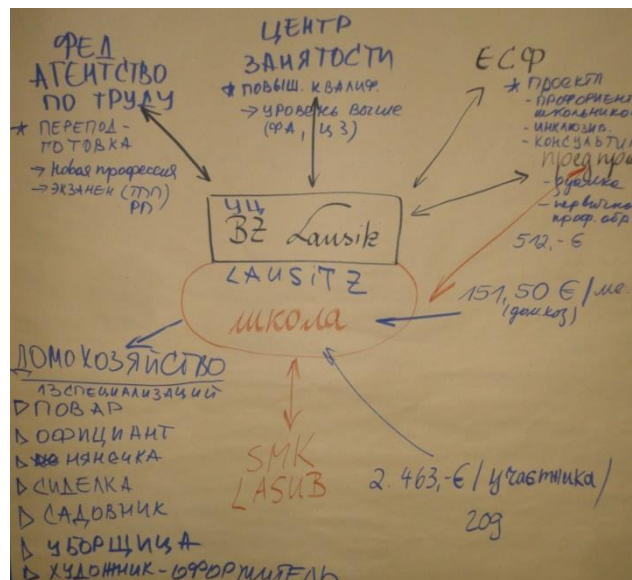 ФЕД
АГЕНТСТВО
ПО ТРУДУ
* ПЕРЕПОД-
ГОТОВКА
→ Новая профессия
→ ЭКЗАМЕН (ТПП)
РП
ЦЕНТР
ЗАНЯТОСТИ
* ПОВЫШ. КВАЛИФ.
→ УРОВЕНЬ ВЫШЕ
(ФА, ЦЗ)
ЕСФ
* ПРОЕКТЫ
- ПРОФОРИЕНТ
школьников
- ИНКЛЮЗИВ.
- КОНСУЛЬТИ
предпри
- первичное
проф. обр
512,- €
УЦ
BZ Lausik
LAUSITZ
школа
151,50 € / ме.
(домхоз)
ДОМОХОЗЯЙСТВО
13 СПЕЦИАЛИЗАЦИЙ
▷ ПОВАР
▷ ОФИЦИАНТ
▷ НЯНЕЧКА
▷ СИДЕЛКА
▷ САДОВНИК
▷ УБОРЩИЦА
▷ ХУДОЖНИК-ОФОРМИТЕЛЬ
SMK
LASUB
2.463,-€ / участника /
год